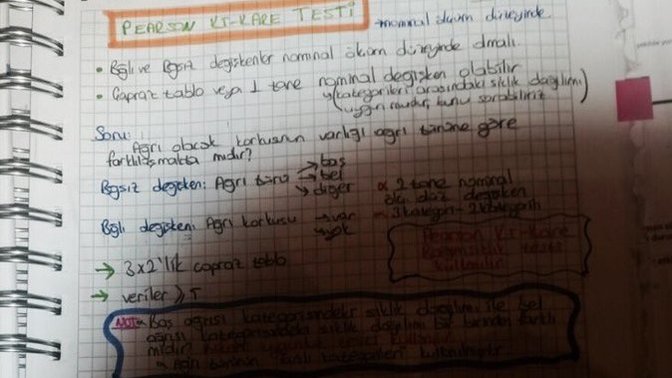 PEARSON Kİ-KARE TESTİ nominal ölçüm düzeyinde
• Bğlı ve Bğsız değişkenler nominal ölçüm düzeyinde olmalı.
• Çapraz tablo veya 1 tane nominal değişken olabilir
(kategorileri arasındaki sıklık dağılımı
uygun mudur, bunu sorabiliriz)
Soru: Ağrı olacak korkusunun varlığı ağrı türüne göre
farklılaşmakta mıdır?
Bğsız değişken: Ağrı türü → baş
→ bel
→ diğer
2 tane nominal
ölç düz değişken
3 kategori - 2 kategorili
Bğlı değişken: Ağrı korkusu → var
→ yok
Pearson Ki-Kare
testi
kullanılır
→ 3x2'lik çapraz tablo
→ veriler ≥ 5
NOT: Baş ağrısı kategorisindeki sıklık dağılımı ile bel
ağrısı kategorisindeki sıklık dağılımı bir birinden farklı
mıdır?
ağrı türünün "farklı kategorileri"